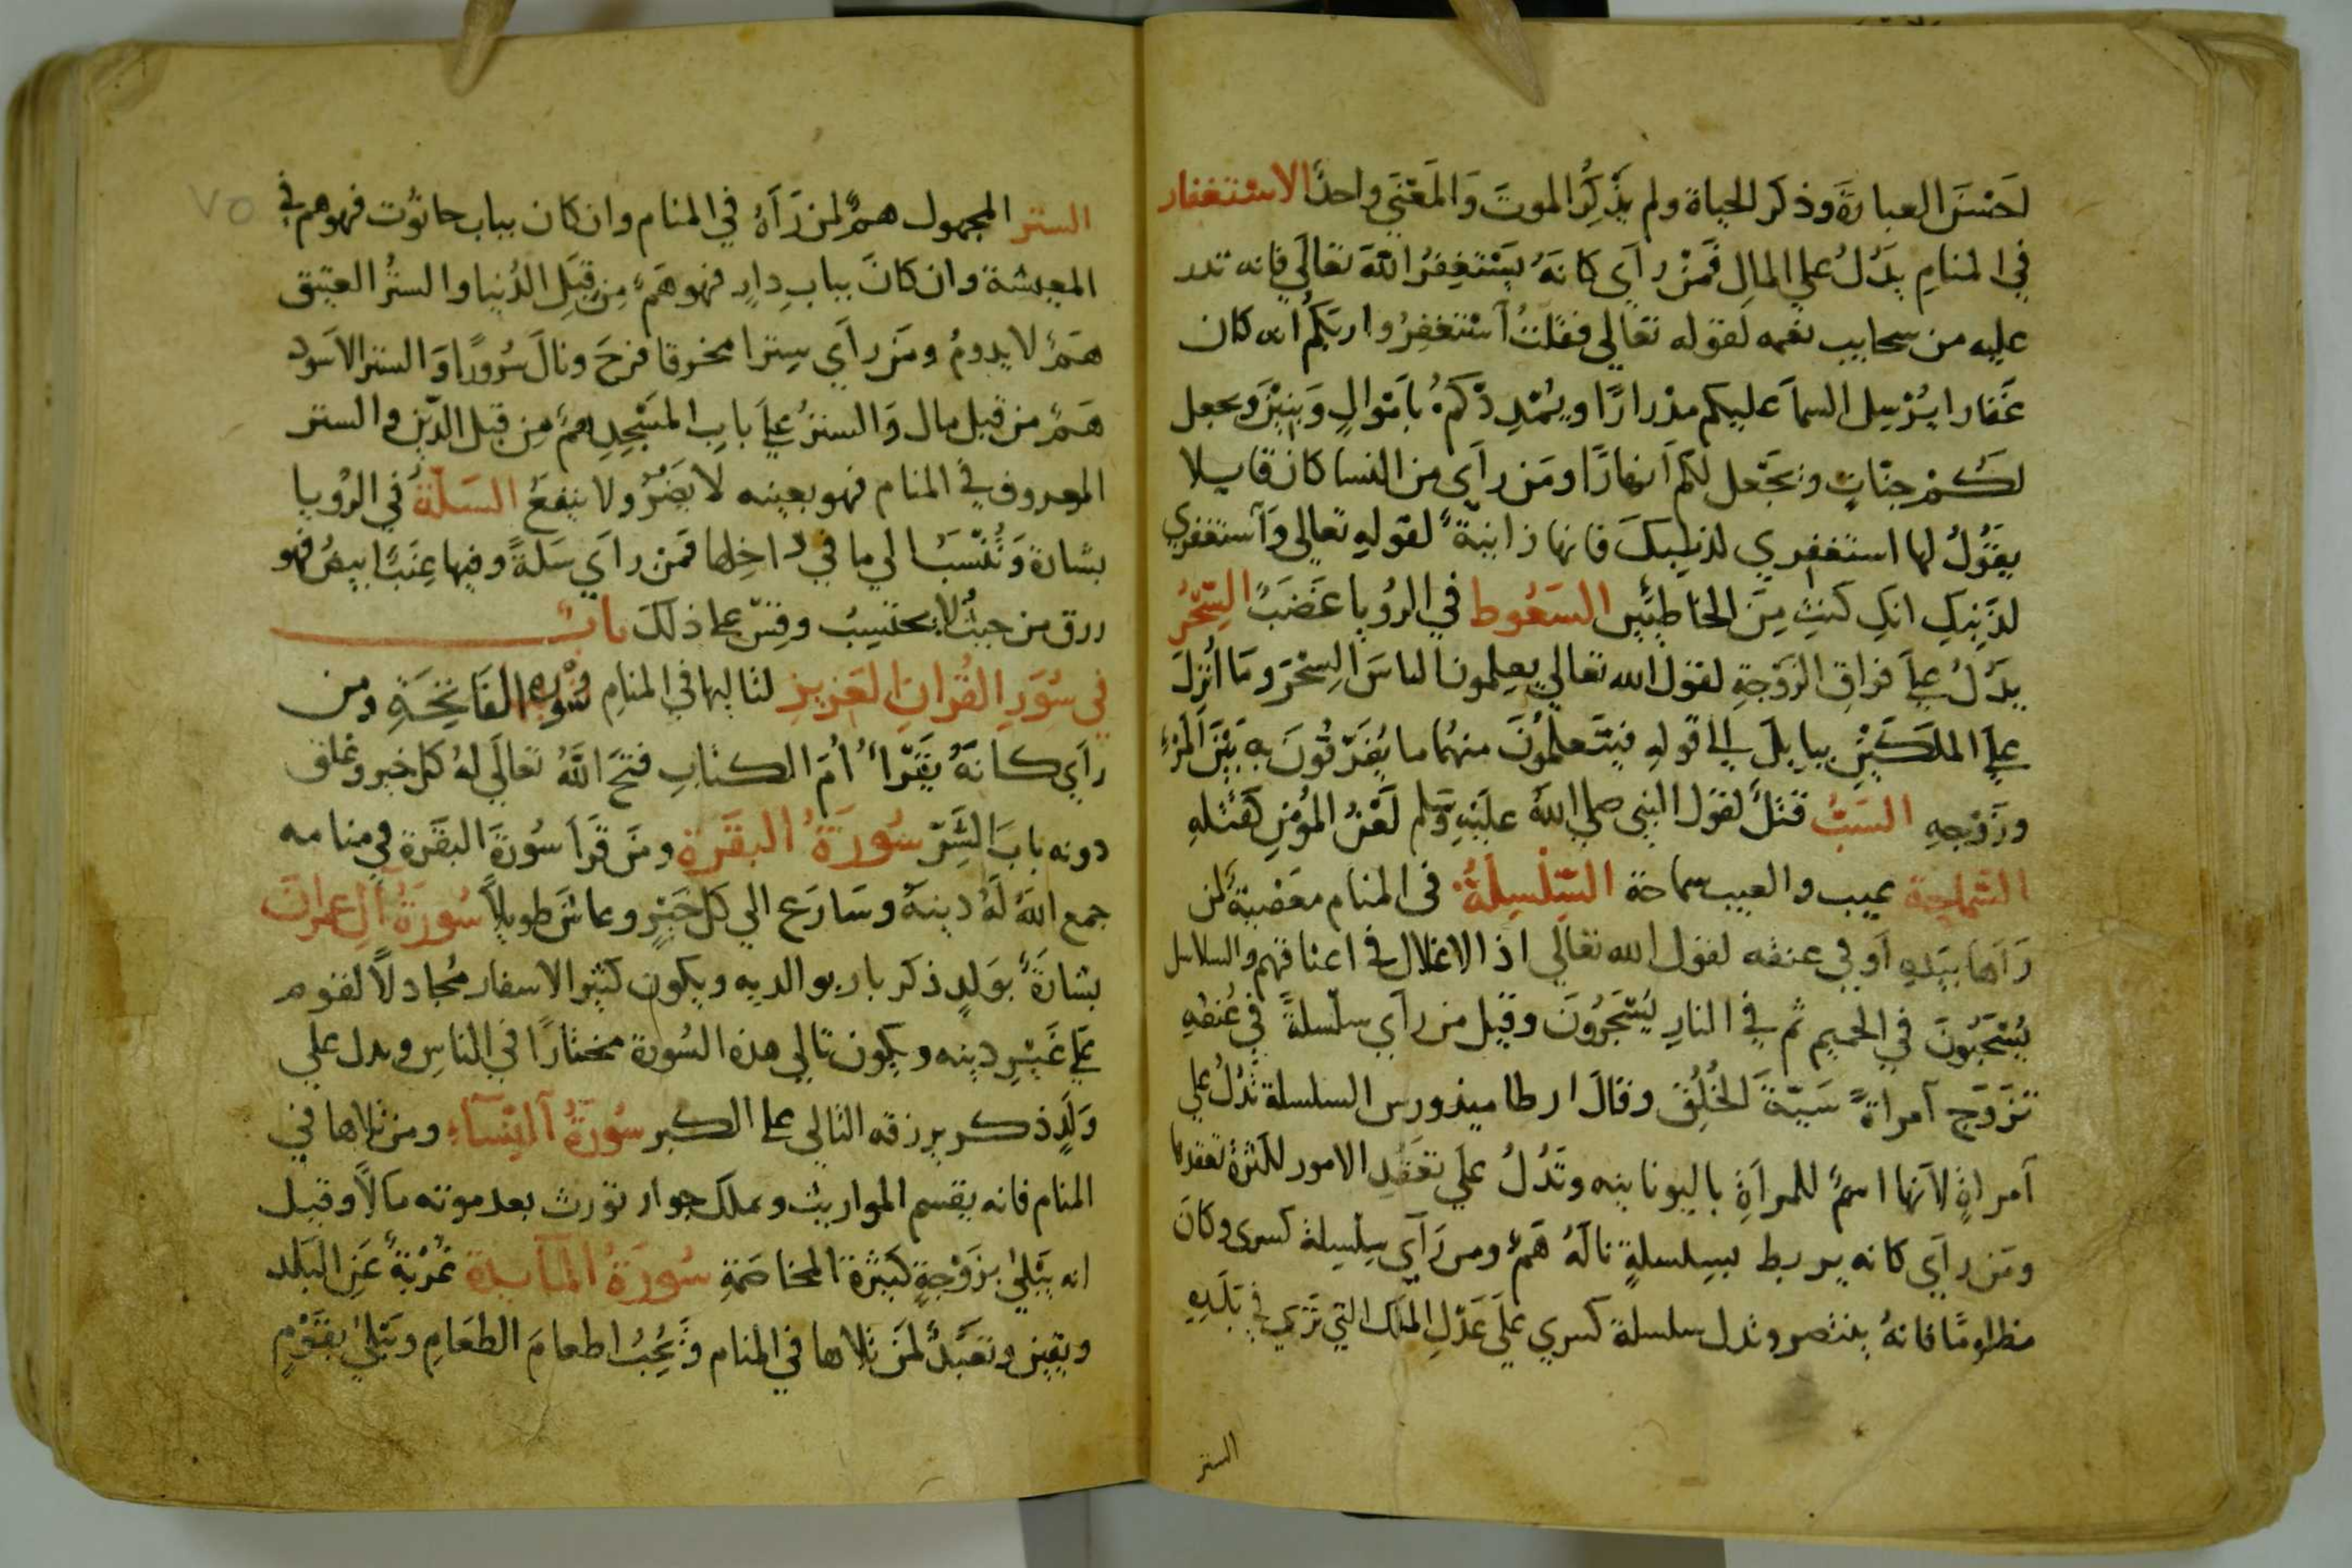 لحسن العبارة وذكر الحياة ولم يذكر الموت والمعني واحد الاستغفار
في المنام يدل علي المال فمن رأي كانه يستغفر الله تعالي فانه تدر
عليه من سحايب نعمه لقوله تعالي فقلت استغفروا ربكم انه كان
غفارا يرسل السما عليكم مدرارا ويمددكم باموال وبنين ويجعل
لكم جنات ويجعل لكم انهارا ومن رأي من النسا كان قايلا
يقول لها استغفري لذنبك فانها زانية لقوله تعالي واستغفري
لذنبك انك كنت من الخاطئين السعوط في الرويا غضب السحر
يدل علي فراق الزوجة لقول الله تعالي يعلمون الناس السحر وما انزل
علي الملكين ببابل الي قوله فيتعلمون منهما ما يفرقون به بين المرء
وزوجه السب قتل لقول النبي صلي الله عليه وسلم لعن المؤمن كقتله
السماجة عيب والعيب سماجة السلسلة في المنام معصية لمن
رآها بيده أو في عنقه لقول الله تعالي اذ الاغلال في اعناقهم والسلاسل
يسحبون في الحميم ثم في النار يسجرون وقيل من رأي سلسلة في عنقه
تزوج امراة سيئة الخلق وقال ارطاميدورس السلسلة تدل علي
امراة لانها اسم للمراة باليونانيه وتدل علي تعقد الامور لكثرة تعقدها
ومن رأي كانه يربط بسلسلة ناله هم ومن رآي سلسلة كسري وكان
مظلوما فانه ينتصر وتدل سلسلة كسري علي عدل الملك التي تري في بلده
الستر
٧٥
الستر المجهول هم لمن رآه في المنام وان كان بباب حانوت فهو هم في
المعيشة وان كان بباب دار فهو هم من قبل الدنيا والستر العتيق
هم لا يدوم ومن رآي سترا مخروقا فرح ونال سرورا والستر الاسود
هم من قبل مال والستر علي باب المسجد هم من قبل الدين والستر
المعروف في المنام فهو بعينه لا يضر ولا ينفع السلة في الرويا
بشارة وتنسب الي ما في داخلها فمن رآي سلة وفيها عنب ابيض فهو
رزق من حيث لا يحتسب وقس علي ذلك باب
في سور القران العزيز لتاليها في المنام سورة الفاتحة ومن
رأي كانه يقرأ أم الكتاب فتح الله تعالي له كل خير وغلق
دونه باب الشر سورة البقرة ومن قرأ سورة البقرة في منامه
جمع الله له دينه وسارع الي كل خير وعاش طويلا سورة آل عمران
بشارة بولد ذكر بار بوالديه ويكون كثير الاسفار مجادلا لقوم
علي غير دينه ويكون تالي هذه السورة مختارا في الناس ويدل علي
ولد ذكر يرزقه التالي علي الكبر سورة النساء ومن تلاها في
المنام فانه يقسم المواريث ويملك جوار تورث بعد موته مالا وقيل
انه يبتلي بزوجة كثيرة المخاصمة سورة المايدة غربة عن البلد
ويقين وتعبد لمن تلاها في المنام ويحب اطعام الطعام ويبتلي بقوم